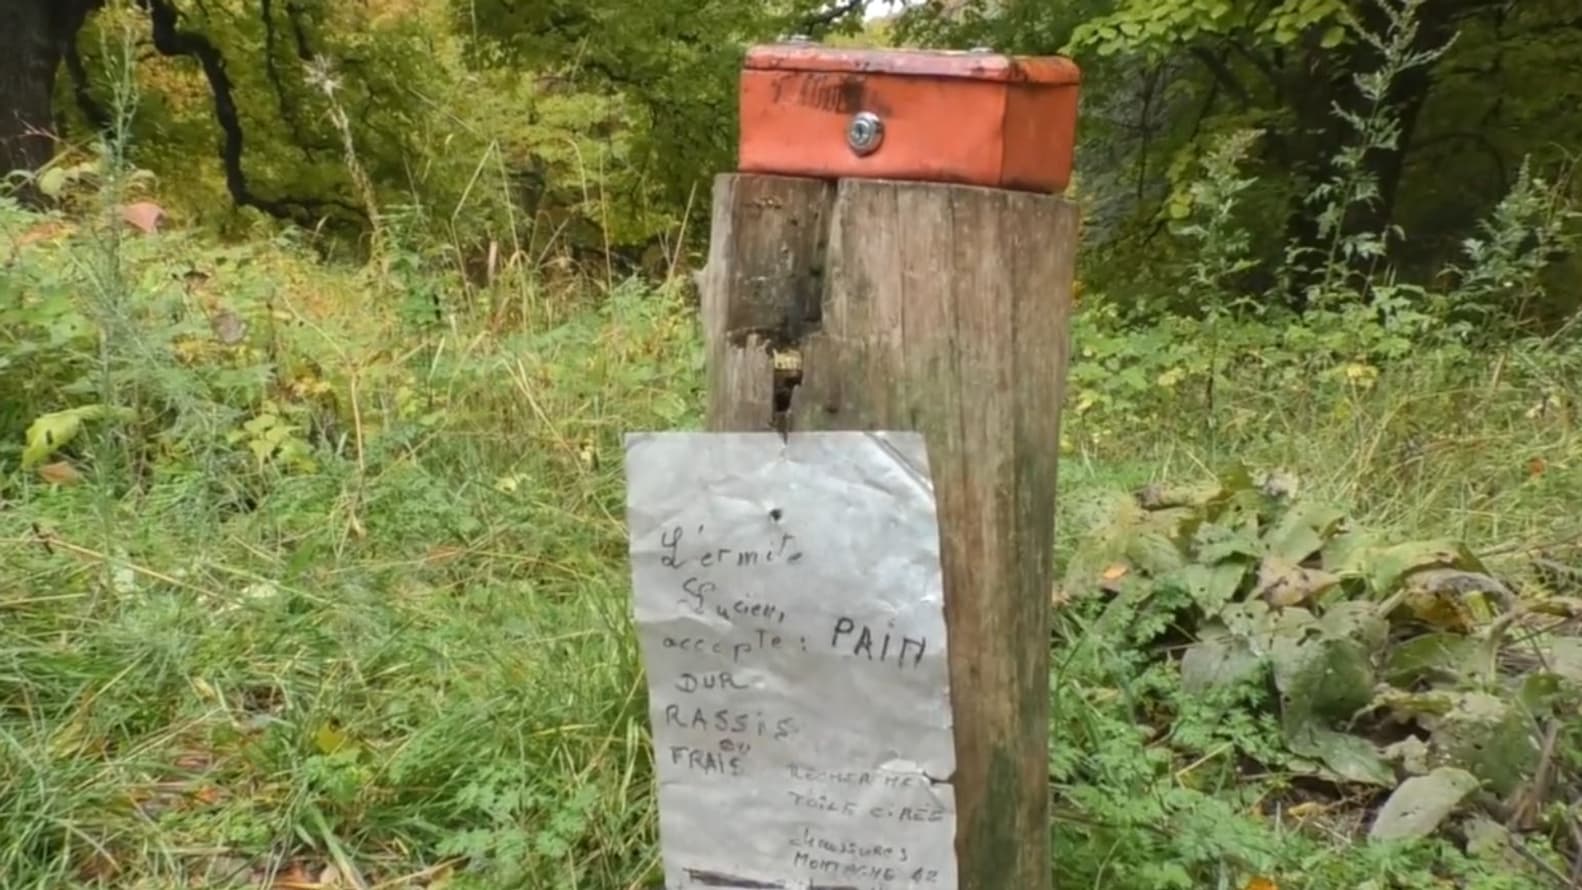 L'ermite
Lucien,
accepte : PAIN
DUR
RASSIS
ou
FRAIS
RECHERCHE
TOILE CIRÉE
chaussures
MONTAGNE 42